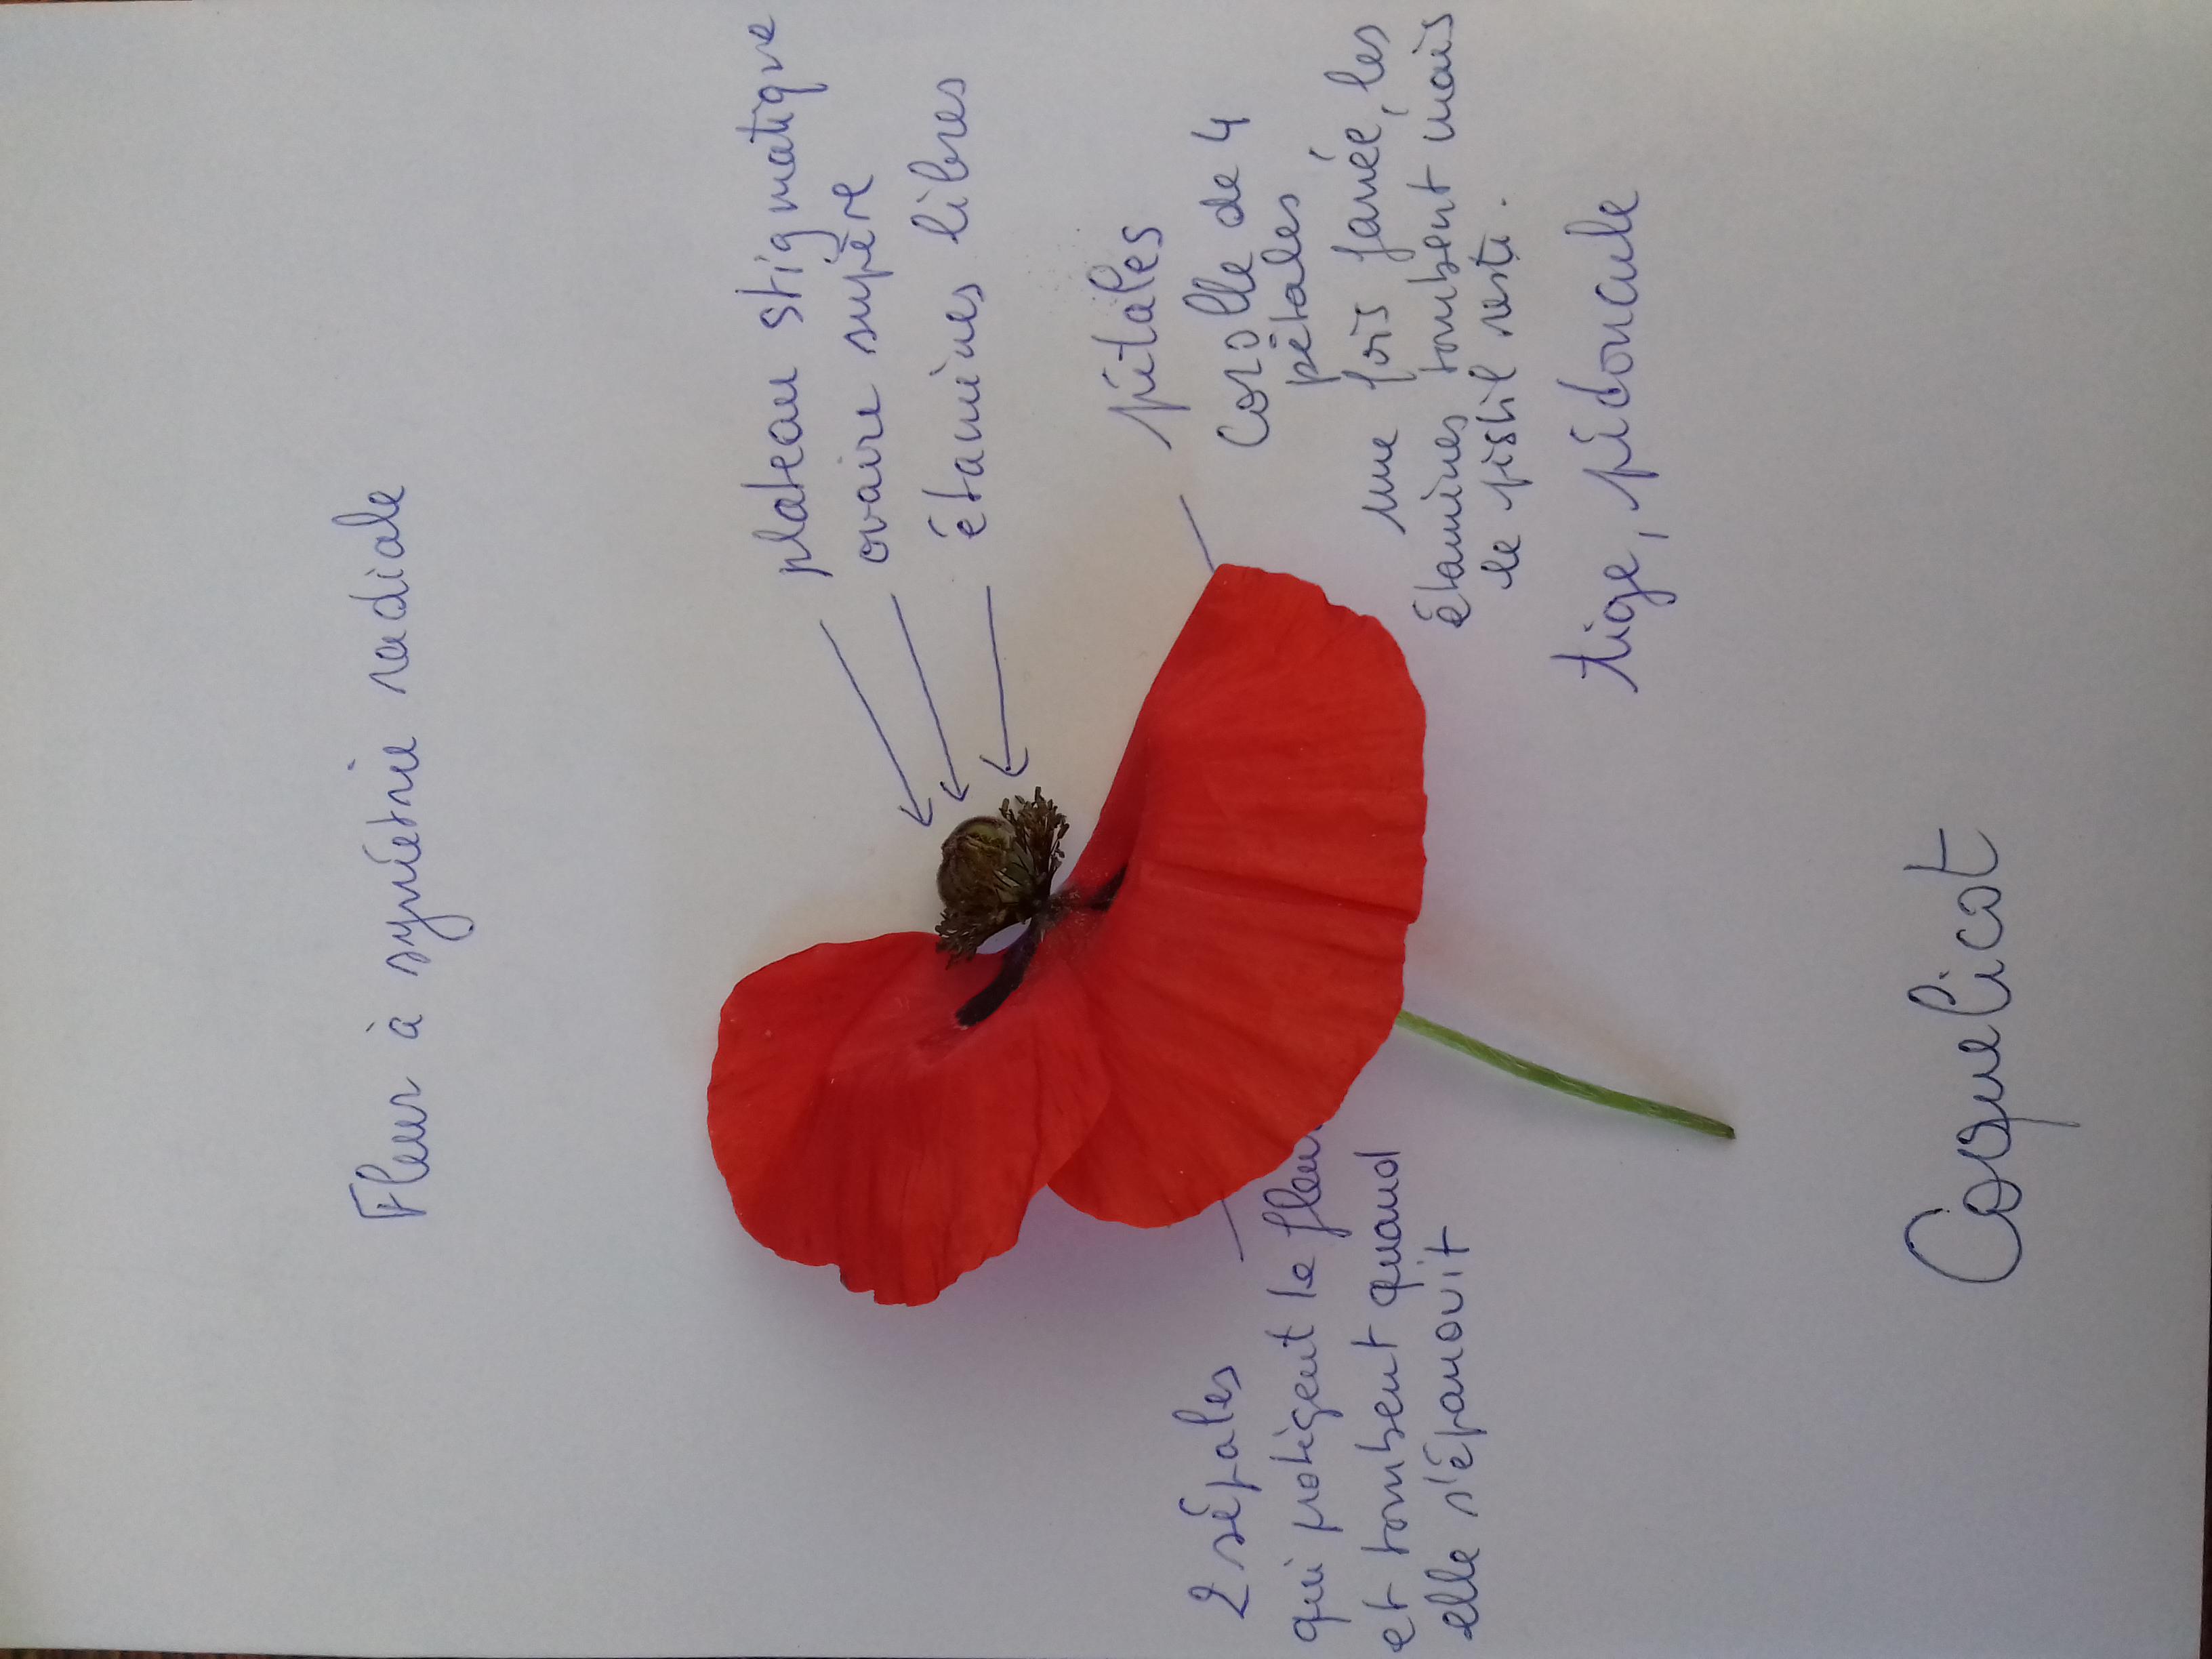 Fleur à symétrie radiale
plateau stigmatique
ovaire supère
étamines libres
pétales
Corolle de 4
pétales
une fois fanée, les
étamines tombent mais
le pistil reste.
tige, pédoncule
2 sépales
qui protègent le fleur
et tombent quand
elle s'épanouit
Coquelicot